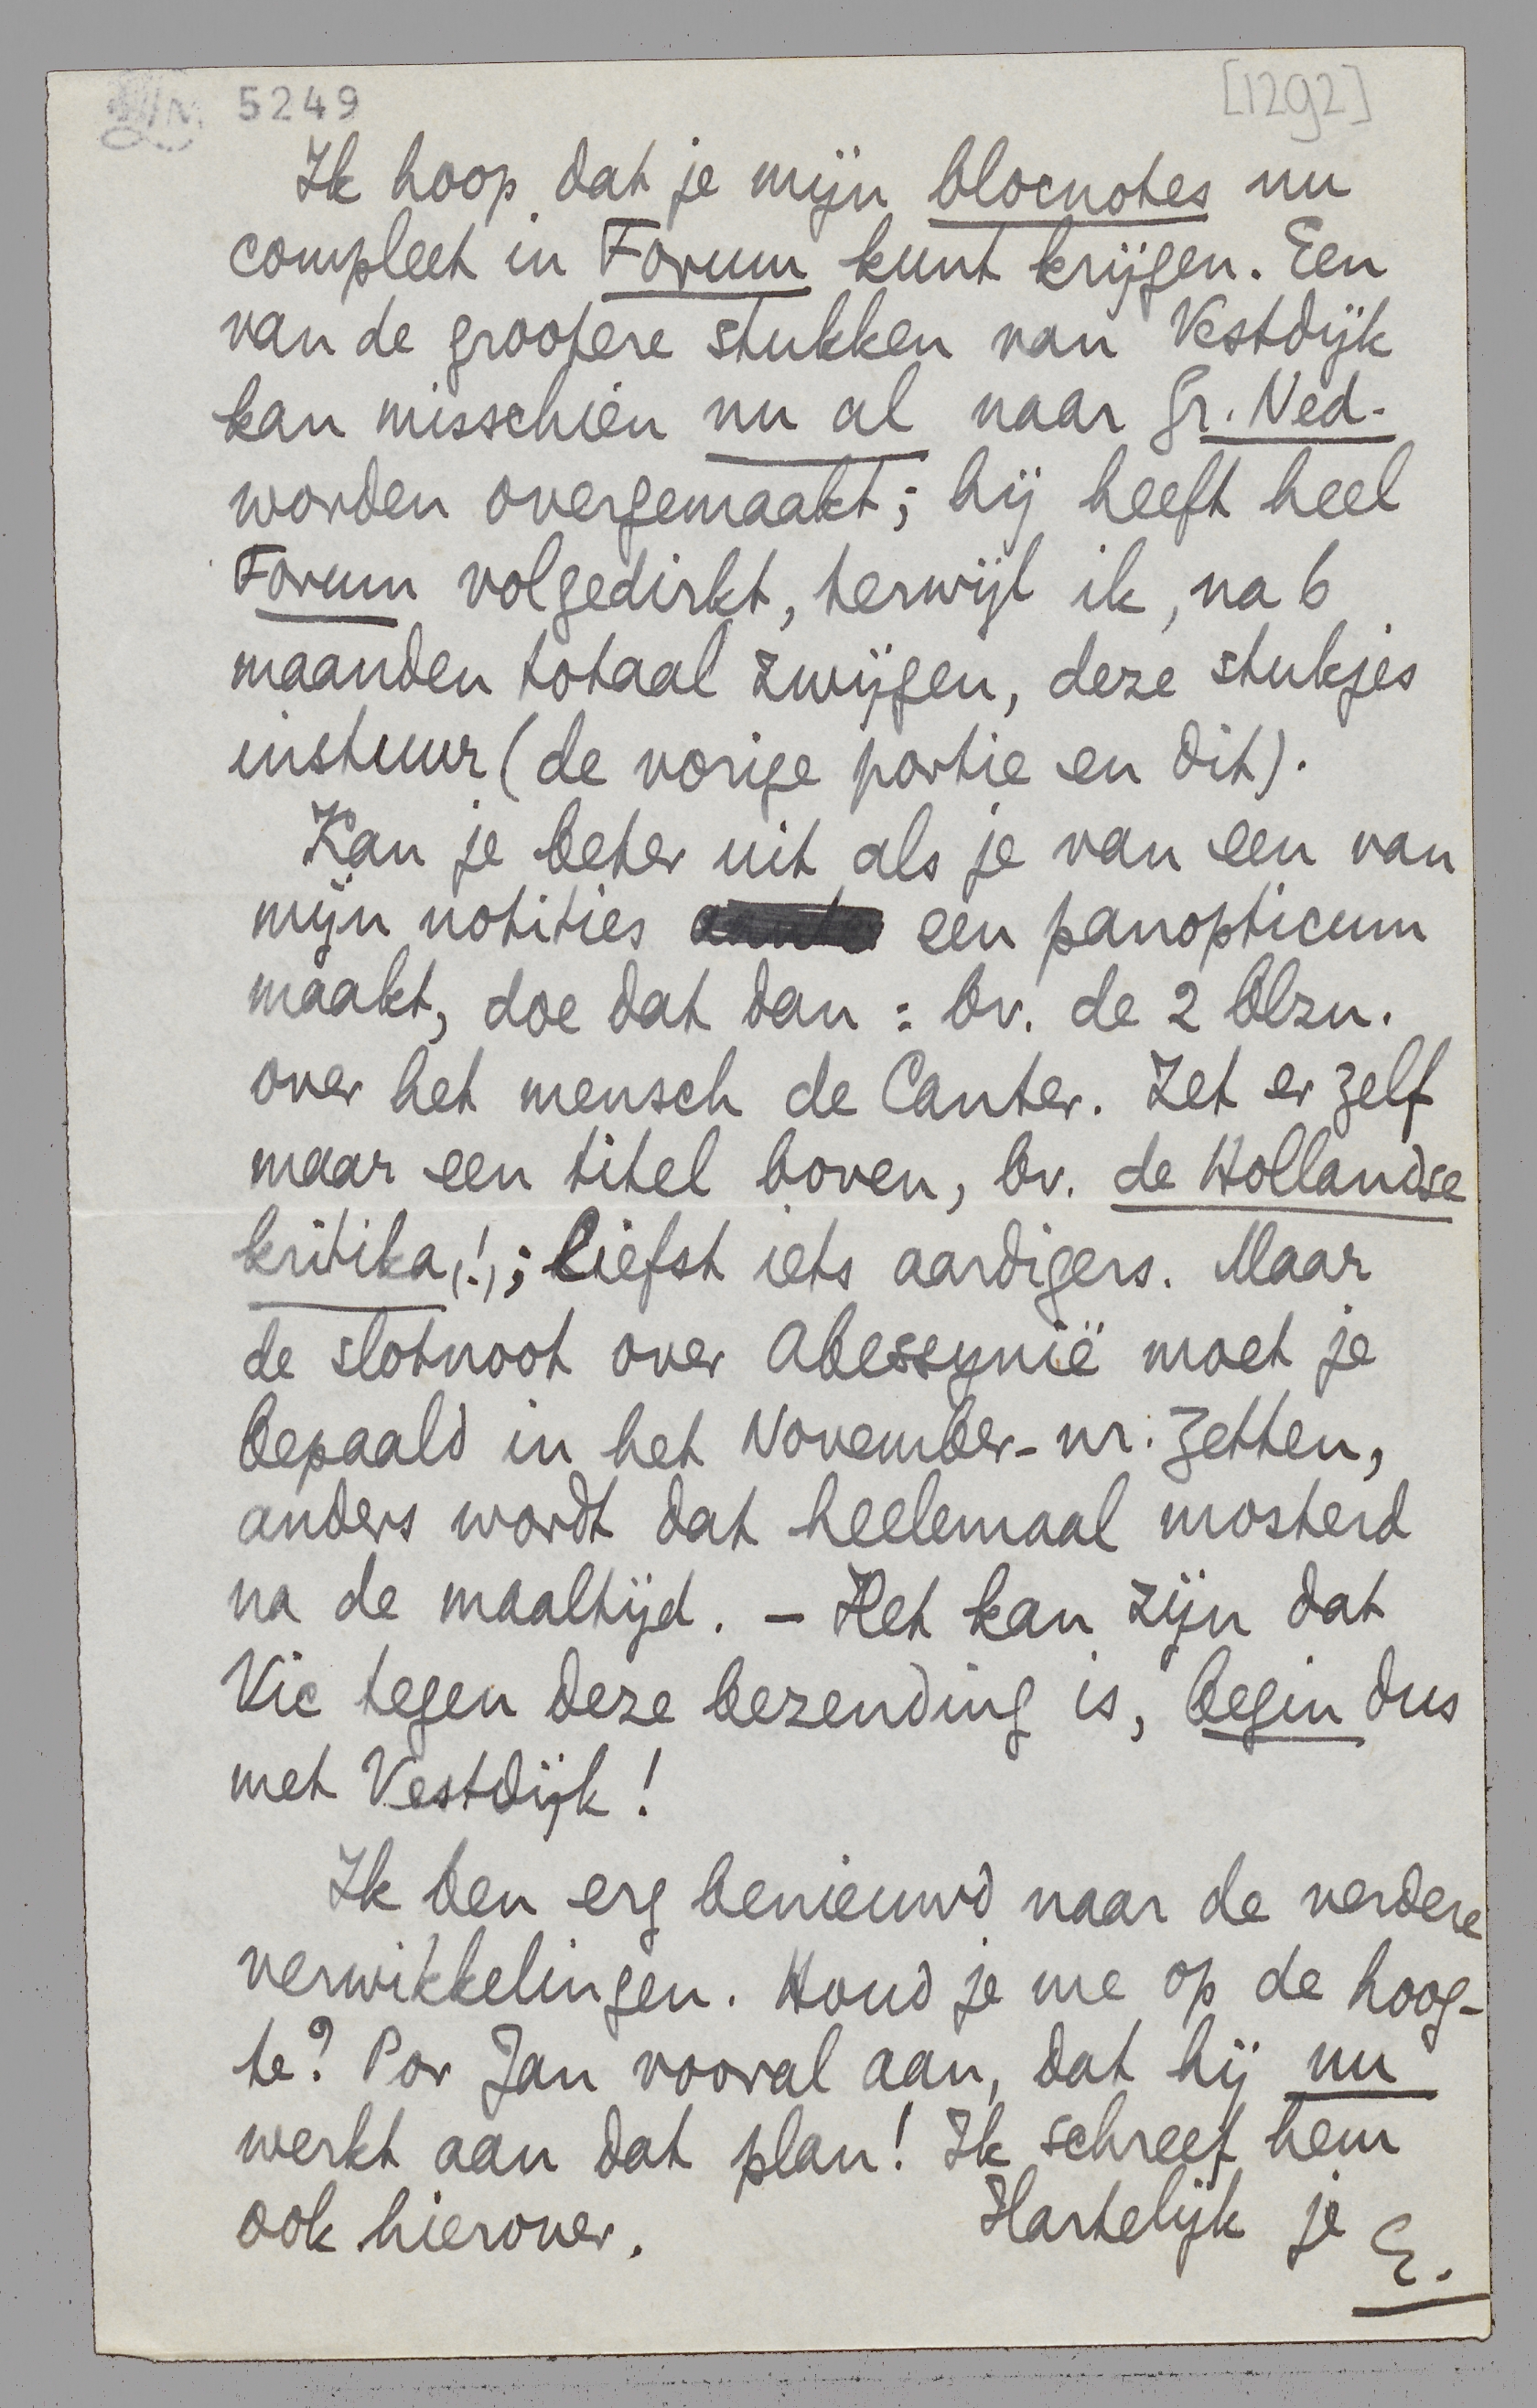 5249
[1292]
Ik hoop dat je mijn blocnotes nu
compleet in Forum kunt krijgen. Een
van de grootere stukken van Vestdijk
kan misschien nu al naar Gr. Ned.
worden overgemaakt; hij heeft heel
Forum volgedirkt, terwijl ik, na 6
maanden totaal zwijgen, deze stukjes
instuur (de vorige portie en dit).
Kan je beter uit als je van een van
mijn notities een panopticum
maakt, doe dat dan: bv. de 2 blzn.
over het mensch de Canter. Zet er zelf
maar een titel boven, bv. de Hollandse
kritika (!); liefst iets aardigers. Maar
de slotnoot over Abessynië moet je
bepaald in het November-nr. zetten,
anders wordt dat heelemaal mosterd
na de maaltijd. – Het kan zijn dat
Vic tegen deze bezending is, begin dus
met Vestdijk!
Ik ben erg benieuwd naar de verdere
verwikkelingen. Houd je me op de hoog-
te? Por Jan vooral aan, dat hij nu
werkt aan dat plan! Ik schreef hem
ook hierover. Hartelijk je E.